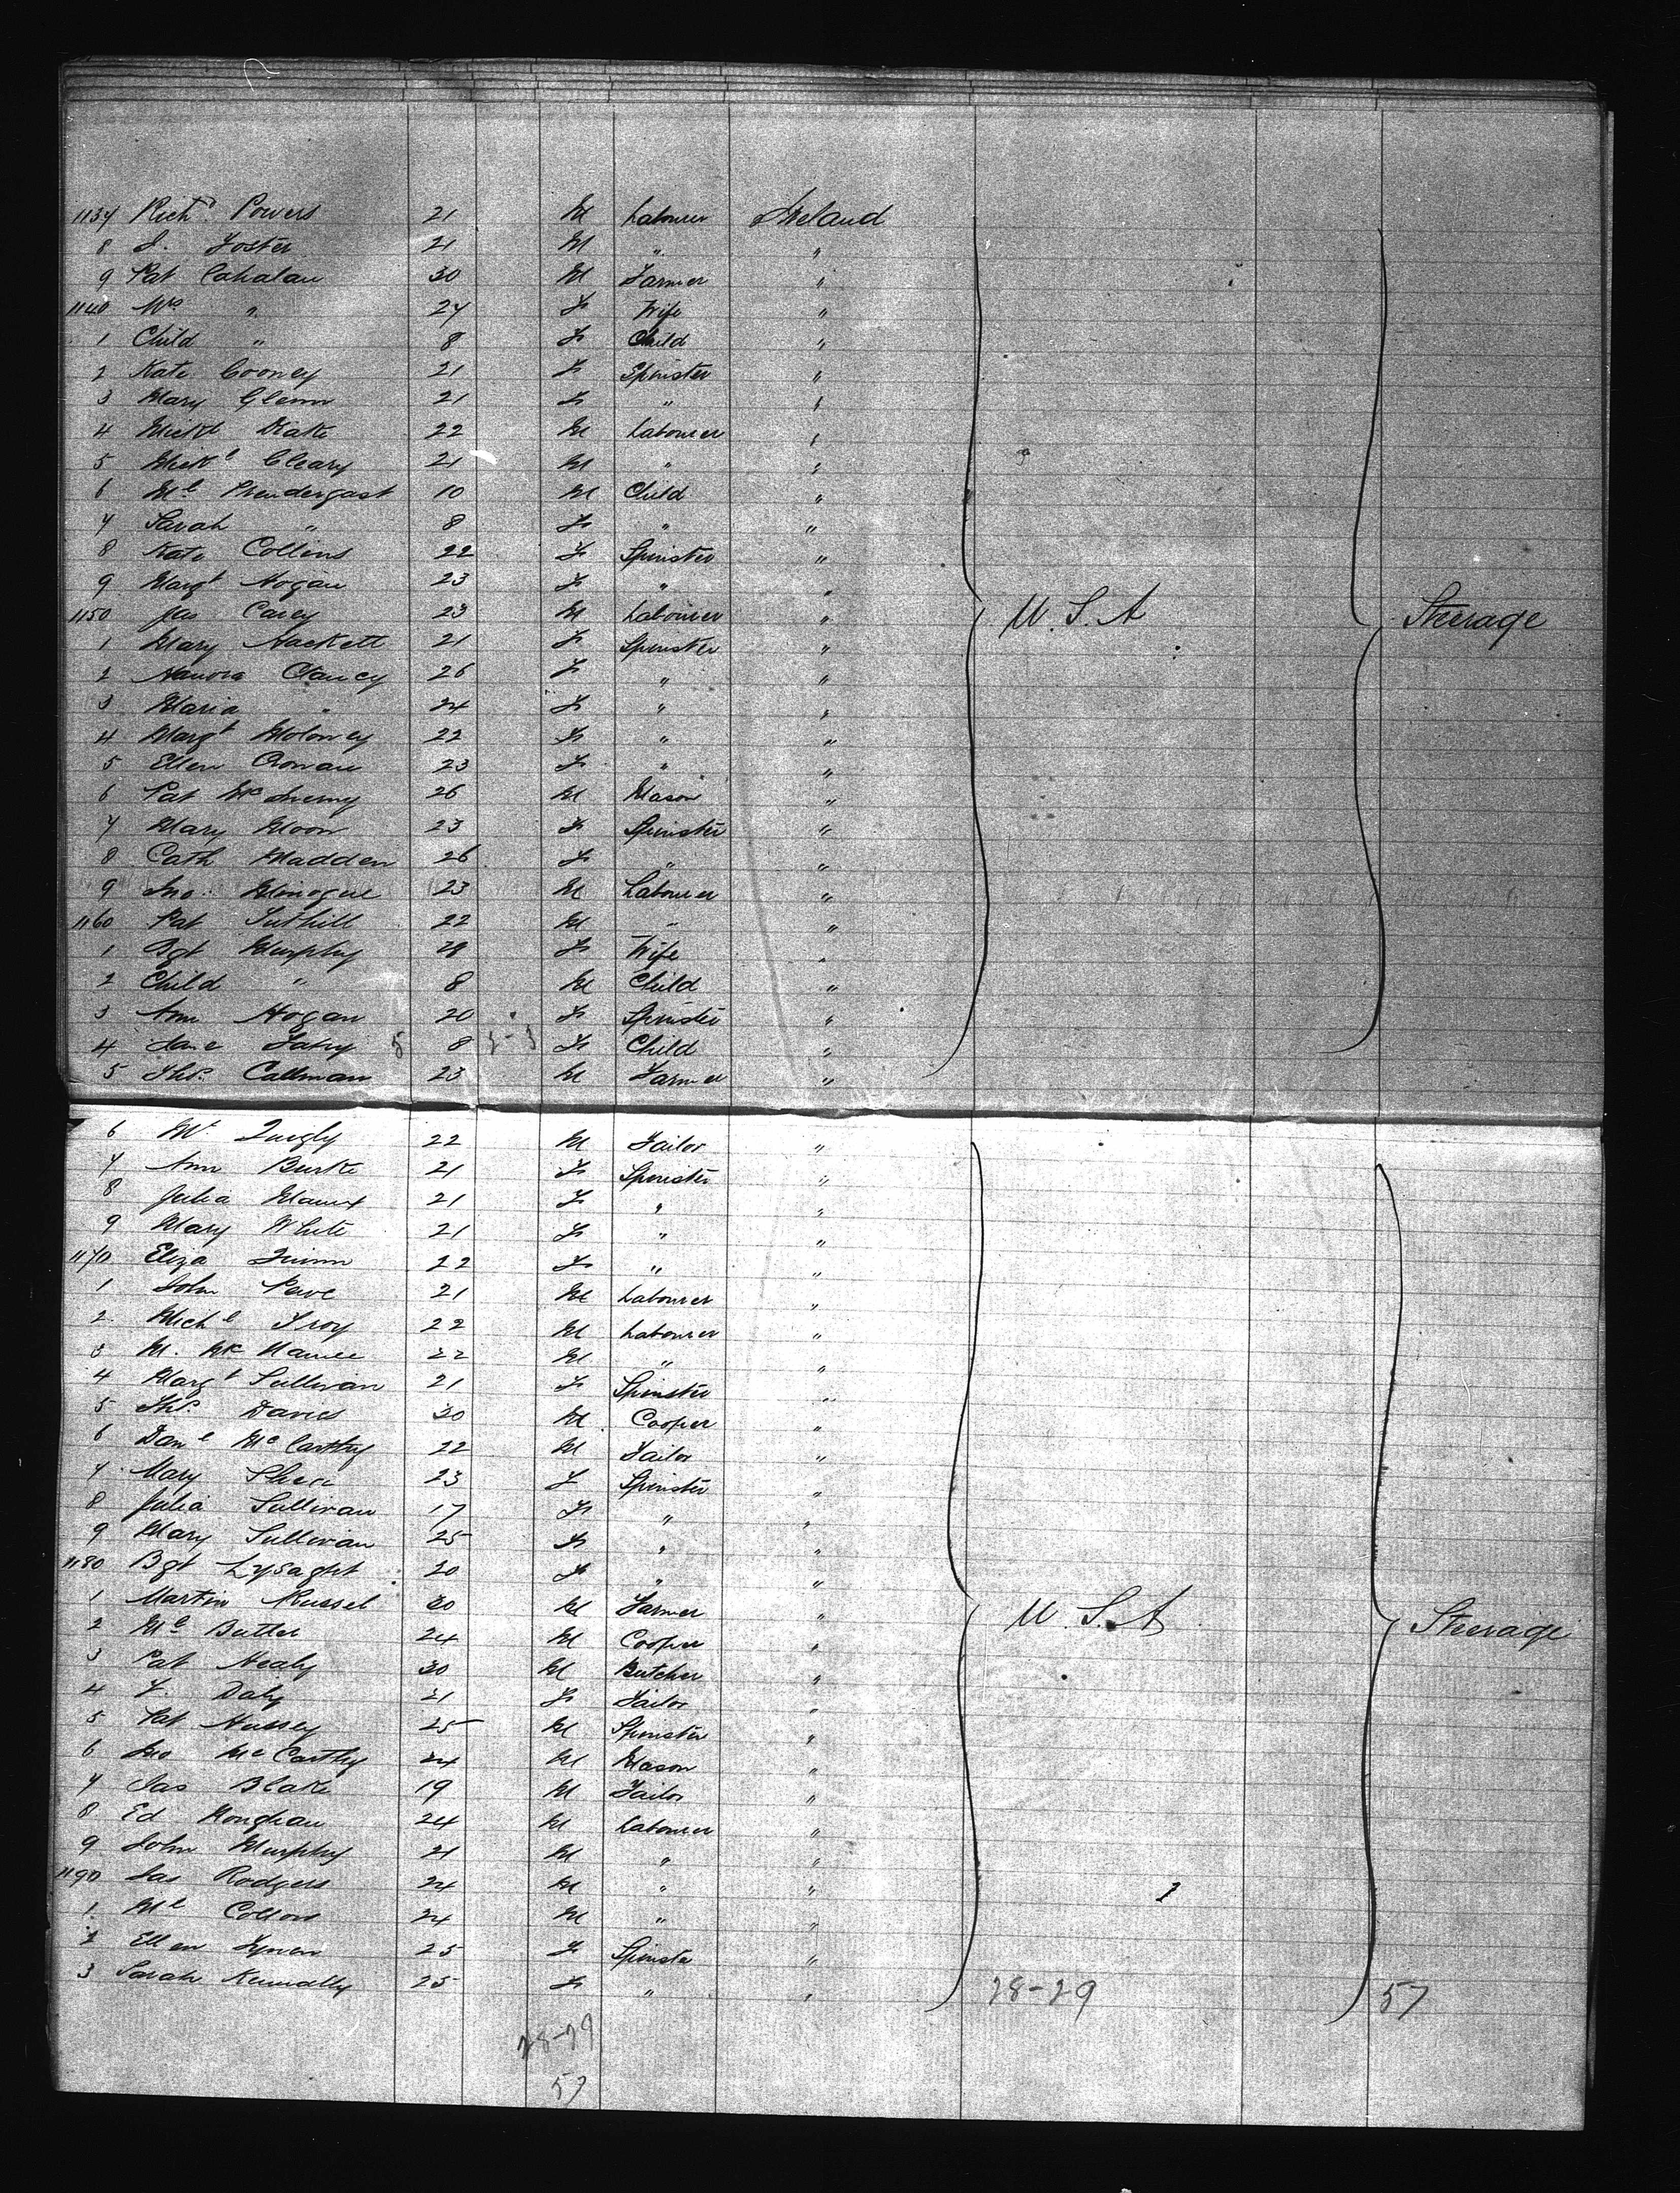 1137 Richd. Powers 21 M Labourer Ireland
8 J. Foster 21 M " "
9 Pat Cahalan 30 M Farmer "
1140 Mrs " 27 F Wife "
1 Child " 8 F Child "
2 Kate Cooney 21 F Spinster "
3 Mary Glenn 21 F " "
4 Michl Drake 22 M Labourer "
5 Michl Cleary 21 M " "
6 Ml Prendergast 10 M Child "
7 Sarah " 8 F " "
8 Kate Collins 22 F Spinster "
9 Margt Hogan 23 F " "
1150 Jas Carey 23 M Labourer " U.S.A Steerage
1 Mary Hackett 21 F Spinster "
2 Hanora Clancy 26 F " "
3 Maria " 24 F " "
4 Margt Moloney 22 F " "
5 Ellen Cronan 23 F " "
6 Pat McInerny 26 M Mason "
7 Mary Moon 23 F Spinster "
8 Cath Madden 26 F " "
9 Jno. Minogue 23 M Labourer "
1160 Pat Tuthill 22 M " "
1 Bgt Murphy 28 F Wife "
2 Child " 8 M Child "
3 Ann Hogan 20 F Spinster "
4 Jane Fahy 5 8 3-3 F Child "
5 Ths. Callinan 23 M Farmer "
6 Ml Quigly 22 M Tailor "
7 Ann Burke 21 F Spinster "
8 Julia 21 F " "
9 Mary White 21 F " "
1170 Eliza Quinn 22 F " "
1 John 21 M Labourer "
2 Michl Troy 22 M Labourer "
3 M. McNamee 22 M " "
4 Margt Sullivan 21 F Spinster "
5 Ths. Davies 30 M Cooper "
6 Danl McCarthy 22 M Tailor "
7 Mary Shea 23 F Spinster "
8 Julia Sullivan 17 F " "
9 Mary Sullivan 25 F " "
1180 Bgt Lysaght 20 F " "
1 Martin Russel 30 M Farmer " U.S.A Steerage
2 Ml Butler 24 M Cooper "
3 Pat Healy 30 M Butcher "
4 T. Daly 21 F Tailor "
5 Pat Hussey 25 M Spinster "
6 Jno McCarthy 24 M Mason "
7 Jas Blake 19 M Tailor "
8 Ed 24 M Labourer "
9 John Murphy 21 M " "
1190 Jas Rodgers 24 M " " 1
1 Ml 24 M " "
2 Ellen 25 F Spinster "
3 Sarah Kennally 25 F " " 28-29 57
28-29
57